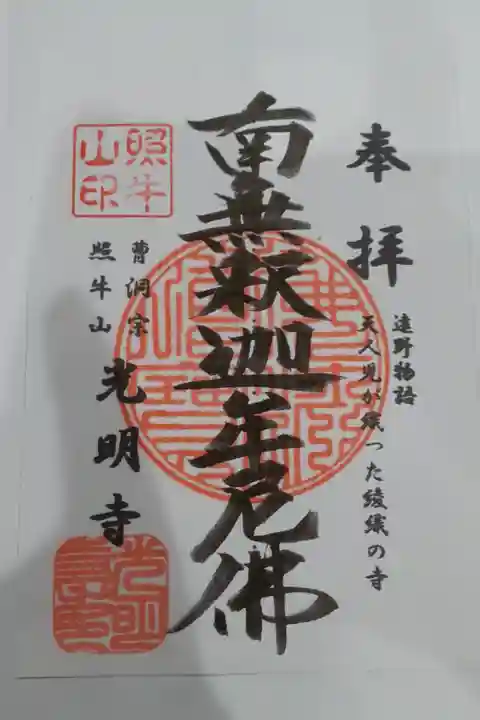 奉拝
遠野物語
天人児が織った綾織の寺
南無釈迦牟尼佛
照牛
山印
曹洞宗
照牛山
光明寺